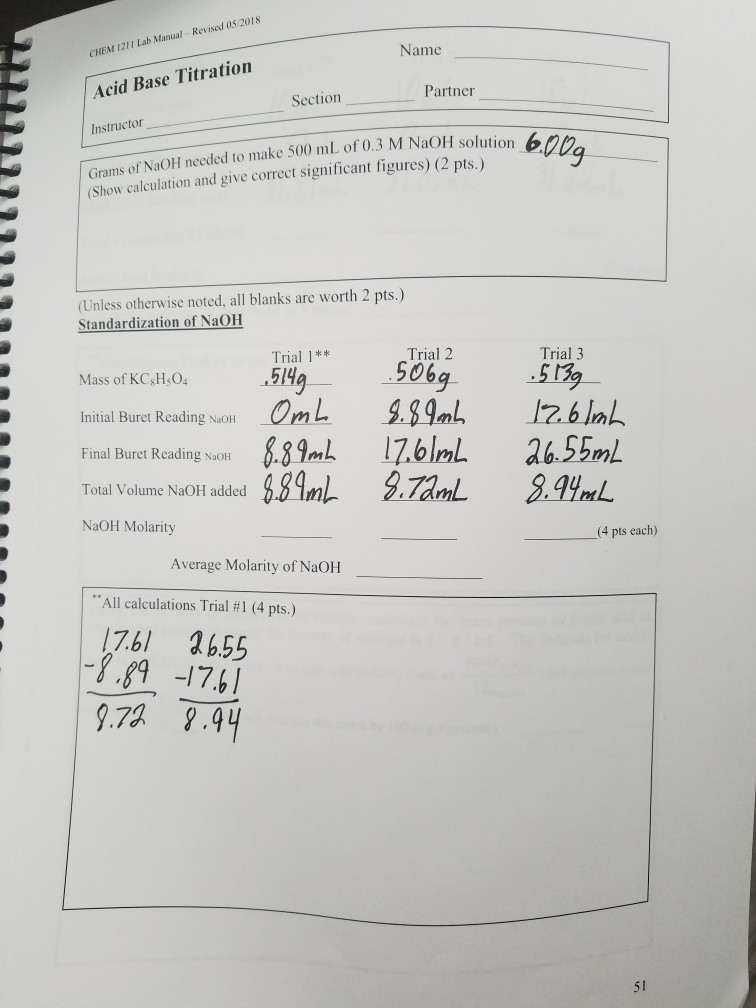 CHEM 1211 Lab Manual – Revised 05/2018
Acid Base Titration
Name
Instructor Section Partner
Grams of NaOH needed to make 500 mL of 0.3 M NaOH solution 6.00g
(Show calculation and give correct significant figures) (2 pts.)
(Unless otherwise noted, all blanks are worth 2 pts.)
Standardization of NaOH
Trial 1** Trial 2 Trial 3
Mass of KC₈H₅O₄ .514g .506g .513g
Initial Buret Reading NaOH 0mL 8.89mL 17.61mL
Final Buret Reading NaOH 8.89mL 17.61mL 26.55mL
Total Volume NaOH added 8.89mL 8.72mL 8.94mL
NaOH Molarity (4 pts each)
Average Molarity of NaOH
**All calculations Trial #1 (4 pts.)
17.61 26.55
-8.89 -17.61
8.72 8.94
51